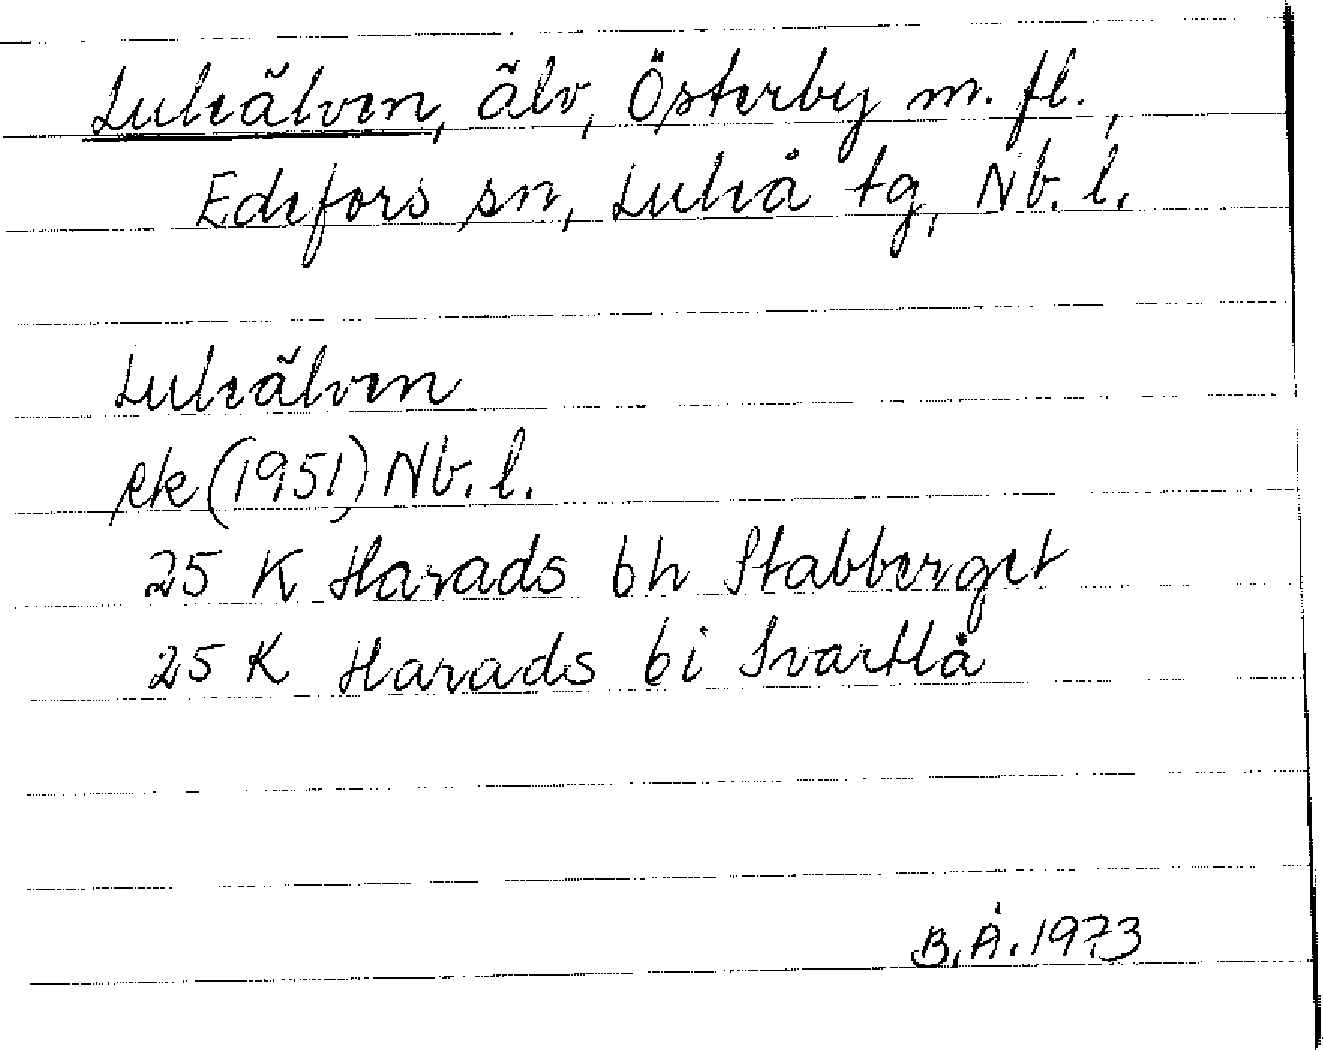 Luleälven, älv, Österby m. fl.,
Edefors sn, Luleå tg, Nb. l.
Luleälven
ek (1951) Nb. l.
25 K Harads bh Stabberget
25 K Harads bi Svartlå
B.Å. 1973